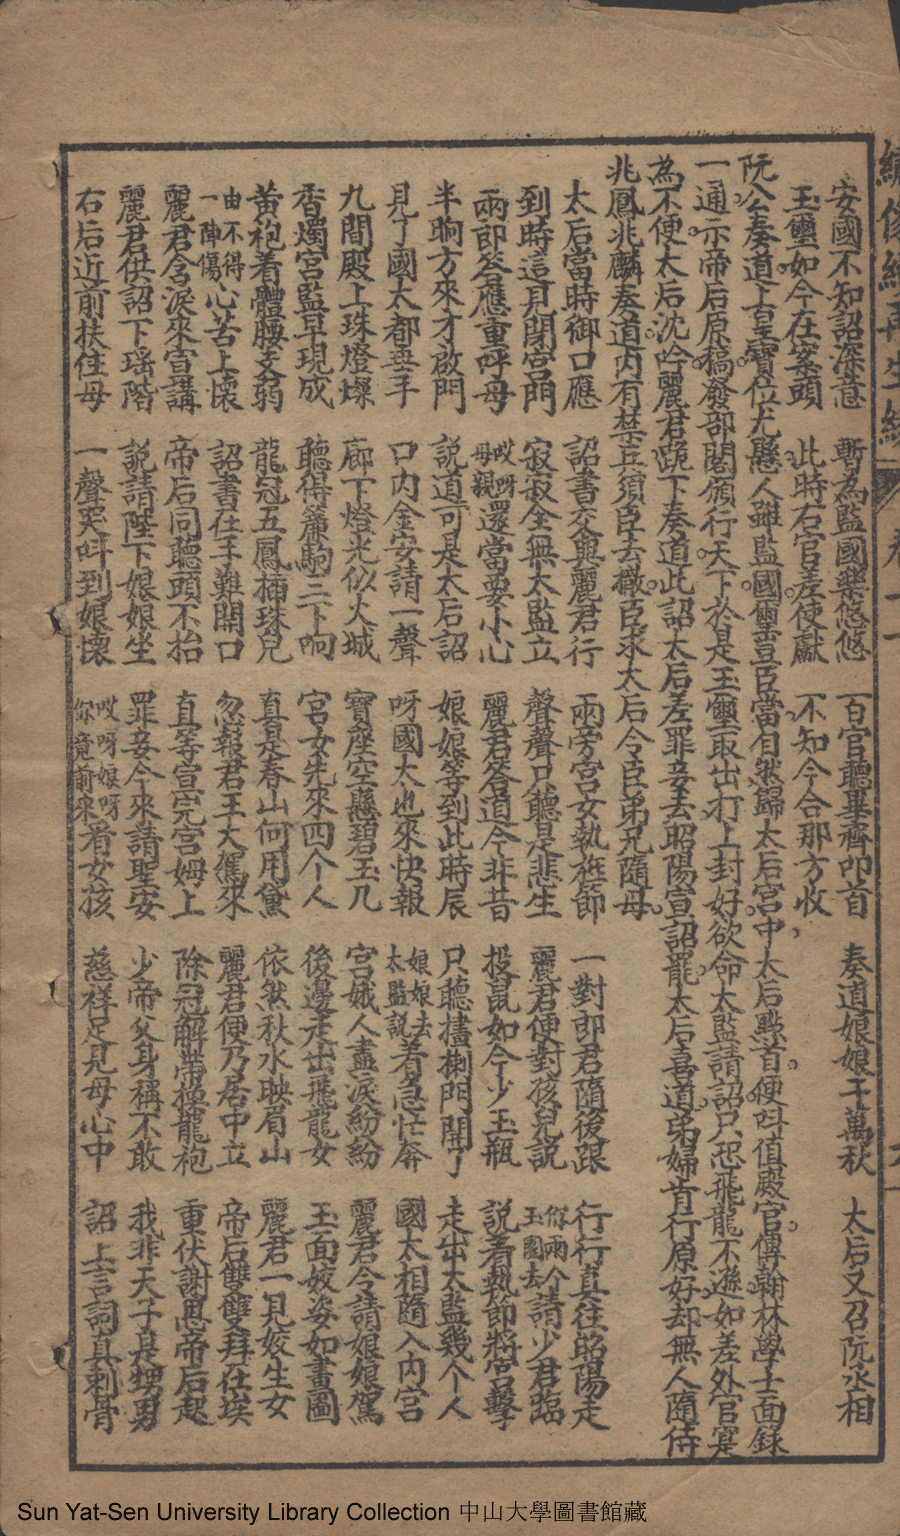 繡像繪再生緣 卷十一
安國不知詔深意 暫為監國樂悠悠 百官聽畢齊叩首 奏道娘娘千萬秋 太后又召阮丞相
玉璽如今在案頭 此時右官差使獻 不知今合那方收
阮公奏道上皇寶位尤懸人雖監國璽豈臣當自然歸太后宮中太后點首便呌值殿官傳翰林學士面錄
一通示帝后原稿發部閣頒行天下於是玉璽取出打上封好欲命太監請詔只恐飛龍不遜如差外官寔
為不便太后沈吟麗君跪下奏道此詔太后差罪妾去昭陽宣詔罷太后喜道弟婦肯行原好却無人隨侍
兆鳳兆麟奏道內有禁兵須臣去撤臣求太后令臣弟兄隨母
太后當時御口應 詔書交與麗君行 兩旁宮女執旌節 一對郎君隨後跟 行行真往昭陽走
到時這月閉宮門 寂寂全無太監立 聲聲只聽是悲生 麗君便對孩兒說 你兩个玉圈去請少君臨
兩郎答應重呼母 哎呀母親還當要小心 麗君答道今非昔 投鼠如今少玉瓶 說着執節將宮擊
半晌方來才啟門 說道可是太后詔 娘娘等到此時辰 只聽𢷬捌門開了 走出太監幾个人
見了國太都垂手 口內金安請一聲 呀國太也來快報 娘娘去太監說着急忙奔 國太相隨入內宮
九間殿上珠燈燦 廊下燈光似火城 寶座空懸碧玉几 宮娥人盡淚紛紛 麗君令請娘娘駕
香燭宮監早現成 聽得簫駒三下响 宮女先來四个人 後邊走出飛龍女 玉面姣姿如畫圖
黃袍着體腰支弱 龍冠五鳳插珠兒 真是春山何用黛 依然秋水映眉山 麗君一見姣生女
由不得一陣傷心苦上懷 詔書在手難開口 忽報君王大駕來 麗君便乃居中立 帝后雙雙拜在埃
麗君含淚來宣講 帝后同聽頭不抬 直等宣完宮姆上 除冠解帶換龍袍 重伏謝恩帝后起
麗君供詔下瑤階 說請陛下娘娘坐 罪妾今來請聖安 少帝父身稱不敢 我非天子是甥男
右后近前扶住母 一聲哭呌到娘懷 哎呀娘呀你竟前來看女孩 慈祥足見母心中 詔上言詞真刺骨
Sun Yat-Sen University Library Collection 中山大學圖書館藏